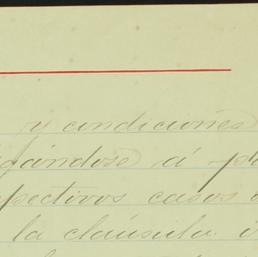 y condiciones
gándose á
pectivos casos
la cláusula